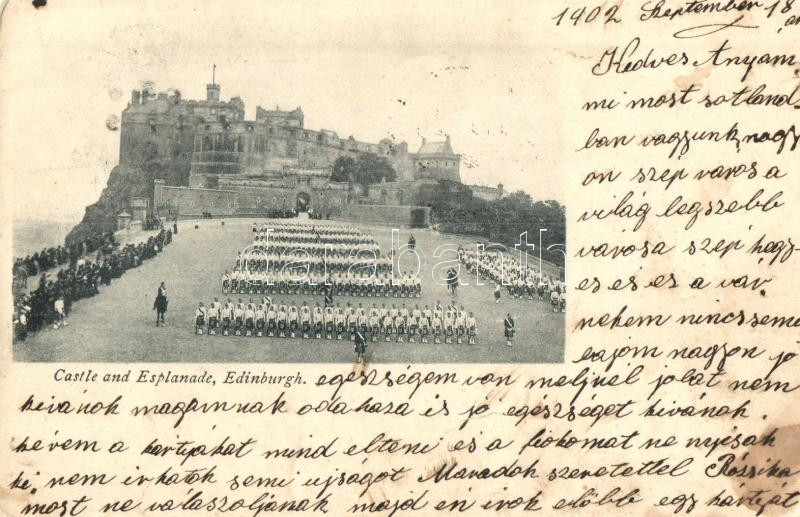 1902 September 18
Kedves Anyám
mi most scotland
ban vagyunk nagy
on szép város a
világ legszebb
városa szép hegy
es és es a vár
nekem nincs semi
bajom nagyon jó
darabanth
Castle and Esplanade, Edinburgh. egeszségem van meljnél jobat nem
kivánok magamnak oda haza is jó egészséget kivánok.
kérem a kartyákat mind elténi és a fiokomat ne nyisak
ki, nem irhatok semi ujságot Maradok szeretettel Rózsika
most ne válaszoljanak majd én irok előbb egy kartyát